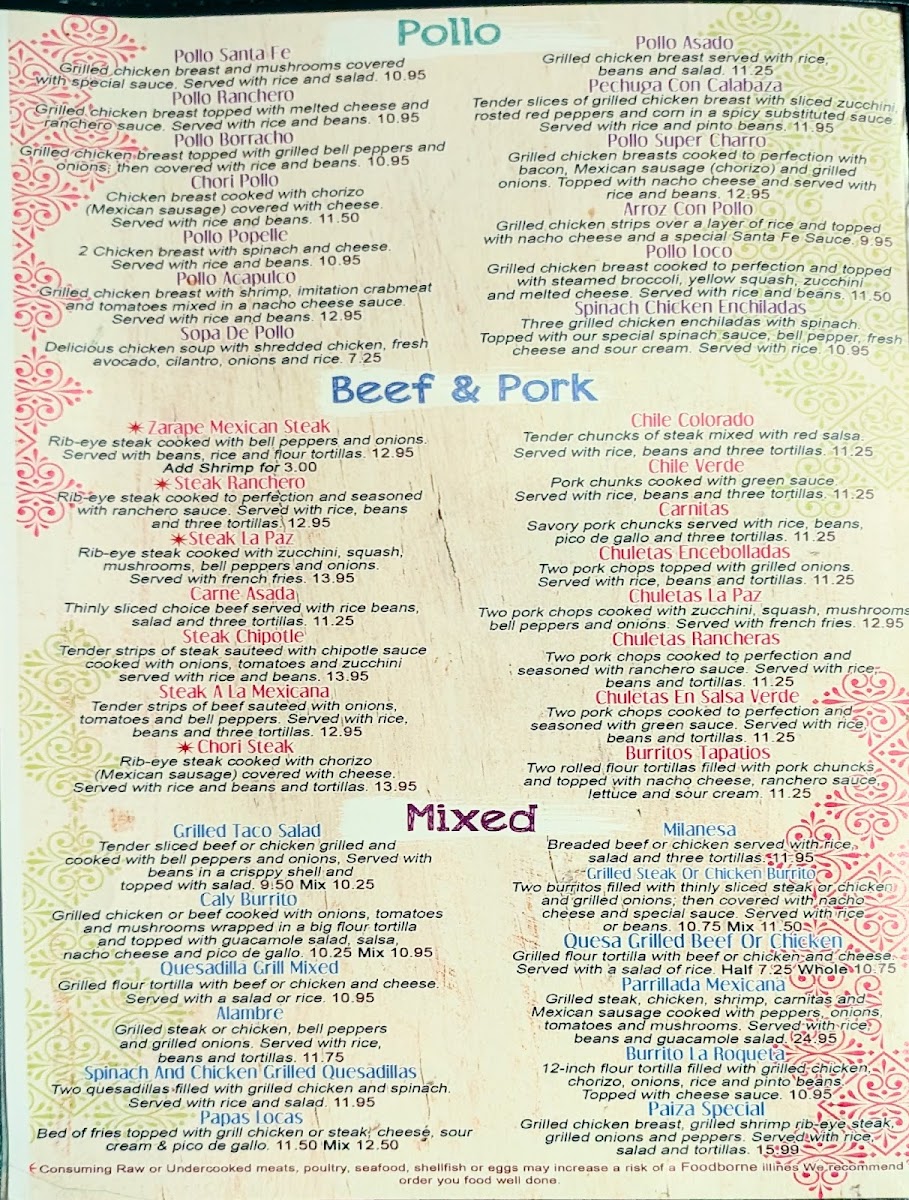 Pollo
Pollo Santa Fe
Grilled chicken breast and mushrooms covered
with special sauce. Served with rice and salad. 10.95
Pollo Ranchero
Grilled chicken breast topped with melted cheese and
ranchero sauce. Served with rice and beans. 10.95
Pollo Borracho
Grilled chicken breast topped with grilled bell peppers and
onions; then covered with rice and beans. 10.95
Chori Pollo
Chicken breast cooked with chorizo
(Mexican sausage) covered with cheese.
Served with rice and beans. 11.50
Pollo Popelle
2 Chicken breast with spinach and cheese.
Served with rice and beans. 10.95
Pollo Acapulco
Grilled chicken breast with shrimp, imitation crabmeat
and tomatoes mixed in a nacho cheese sauce.
Served with rice and beans. 12.95
Sopa De Pollo
Delicious chicken soup with shredded chicken, fresh
avocado, cilantro, onions and rice. 7.25
Pollo Asado
Grilled chicken breast served with rice,
beans and salad. 11.25
Pechuga Con Calabaza
Tender slices of grilled chicken breast with sliced zucchini,
rosted red peppers and corn in a spicy substituted sauce
Served with rice and pinto beans. 11.95
Pollo Super Charro
Grilled chicken breasts cooked to perfection with
bacon, Mexican sausage (chorizo) and grilled
onions. Topped with nacho cheese and served with
rice and beans. 12.95
Arroz Con Pollo
Grilled chicken strips over a layer of rice and topped
with nacho cheese and a special Santa Fe Sauce. 9.95
Pollo Loco
Grilled chicken breast cooked to perfection and topped
with steamed broccoli, yellow squash, zucchini
and melted cheese. Served with rice and beans. 11.50
Spinach Chicken Enchiladas
Three grilled chicken enchiladas with spinach.
Topped with our special spinach sauce, bell pepper, fresh
cheese and sour cream. Served with rice. 10.95
Beef & Pork
✶ Zarape Mexican Steak
Rib-eye steak cooked with bell peppers and onions.
Served with beans, rice and flour tortillas. 12.95
Add Shrimp for 3.00
✶ Steak Ranchero
Rib-eye steak cooked to perfection and seasoned
with ranchero sauce. Served with rice, beans
and three tortillas. 12.95
✶ Steak La Paz
Rib-eye steak cooked with zucchini, squash,
mushrooms, bell peppers and onions.
Served with french fries. 13.95
Carne Asada
Thinly sliced choice beef served with rice beans,
salad and three tortillas. 11.25
Steak Chipotle
Tender strips of steak sauteed with chipotle sauce
cooked with onions, tomatoes and zucchini
served with rice and beans. 13.95
Steak A La Mexicana
Tender strips of beef sauteed with onions,
tomatoes and bell peppers. Served with rice,
beans and three tortillas. 12.95
✶ Chori Steak
Rib-eye steak cooked with chorizo
(Mexican sausage) covered with cheese.
Served with rice and beans and tortillas. 13.95
Chile Colorado
Tender chuncks of steak mixed with red salsa.
Served with rice, beans and three tortillas. 11.25
Chile Verde
Pork chunks cooked with green sauce.
Served with rice, beans and three tortillas. 11.25
Carnitas
Savory pork chuncks served with rice, beans,
pico de gallo and three tortillas. 11.25
Chuletas Encebolladas
Two pork chops topped with grilled onions.
Served with rice, beans and tortillas. 11.25
Chuletas La Paz
Two pork chops cooked with zucchini, squash, mushrooms
bell peppers and onions. Served with french fries. 12.95
Chuletas Rancheras
Two pork chops cooked to perfection and
seasoned with ranchero sauce. Served with rice,
beans and tortillas. 11.25
Chuletas En Salsa Verde
Two pork chops cooked to perfection and
seasoned with green sauce. Served with rice,
beans and tortillas. 11.25
Burritos Tapatios
Two rolled flour tortillas filled with pork chuncks
and topped with nacho cheese, ranchero sauce,
lettuce and sour cream. 11.25
Mixed
Grilled Taco Salad
Tender sliced beef or chicken grilled and
cooked with bell peppers and onions, Served with
beans in a crisppy shell and
topped with salad. 9.50 Mix 10.25
Caly Burrito
Grilled chicken or beef cooked with onions, tomatoes
and mushrooms wrapped in a big flour tortilla
and topped with guacamole salad, salsa,
nacho cheese and pico de gallo. 10.25 Mix 10.95
Quesadilla Grill Mixed
Grilled flour tortilla with beef or chicken and cheese.
Served with a salad or rice. 10.95
Alambre
Grilled steak or chicken, bell peppers
and grilled onions. Served with rice,
beans and tortillas. 11.75
Spinach And Chicken Grilled Quesadillas
Two quesadillas filled with grilled chicken and spinach.
Served with rice and salad. 11.95
Papas Locas
Bed of fries topped with grill chicken or steak, cheese, sour
cream & pico de gallo. 11.50 Mix 12.50
Milanesa
Breaded beef or chicken served with rice,
salad and three tortillas. 11.95
Grilled Steak Or Chicken Burrito
Two burritos filled with thinly sliced steak or chicken
and grilled onions; then covered with nacho
cheese and special sauce. Served with rice
or beans. 10.75 Mix 11.50
Quesa Grilled Beef Or Chicken
Grilled flour tortilla with beef or chicken and cheese.
Served with a salad of rice. Half 7.25 Whole 10.75
Parrillada Mexicana
Grilled steak, chicken, shrimp, carnitas and
Mexican sausage cooked with peppers, onions,
tomatoes and mushrooms. Served with rice,
beans and guacamole salad. 24.95
Burrito La Roqueta
12-inch flour tortilla filled with grilled chicken,
chorizo, onions, rice and pinto beans.
Topped with cheese sauce. 10.95
Paiza Special
Grilled chicken breast, grilled shrimp rib-eye steak,
grilled onions and peppers. Served with rice,
salad and tortillas. 15.99
Consuming Raw or Undercooked meats, poultry, seafood, shellfish or eggs may increase a risk of a Foodborne illines We recommend
order you food well done.